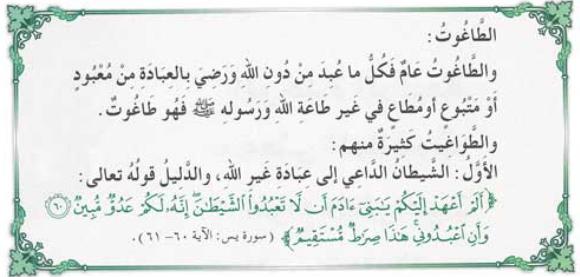 الطَّاغُوتُ:
والطَّاغُوتُ عَامٌ فَكُلُّ ما عُبِدَ مِنْ دُونِ اللهِ وَرَضِيَ بِالعِبَادَةِ مِنْ مَعْبُودٍ
أَوْ مَتْبُوعٍ أومُطَاعٍ في غَيرِ طَاعَةِ اللهِ وَرَسُولِهِ ﷺ فَهُو طَاغُوتٌ.
والطَّوَاغِيتُ كَثيرَةٌ منهم:
الأَوَّلُ: الشَّيطانُ الدَّاعِي إلى عبَادَةِ غَيرِ اللهِ، والدَّليلُ قولُهُ تعالى:
﴿أَلَمْ أَعْهَدْ إِلَيْكُمْ يَٰبَنِىٓ ءَادَمَ أَن لَّا تَعْبُدُوا۟ ٱلشَّيْطَٰنَ ۖ إِنَّهُۥ لَكُمْ عَدُوٌّ مُّبِينٌ ٦٠
وَأَنِ ٱعْبُدُونِى ۚ هَٰذَا صِرَٰطٌ مُّسْتَقِيمٌ﴾ (سورة يس: الآية ٦٠-٦١).